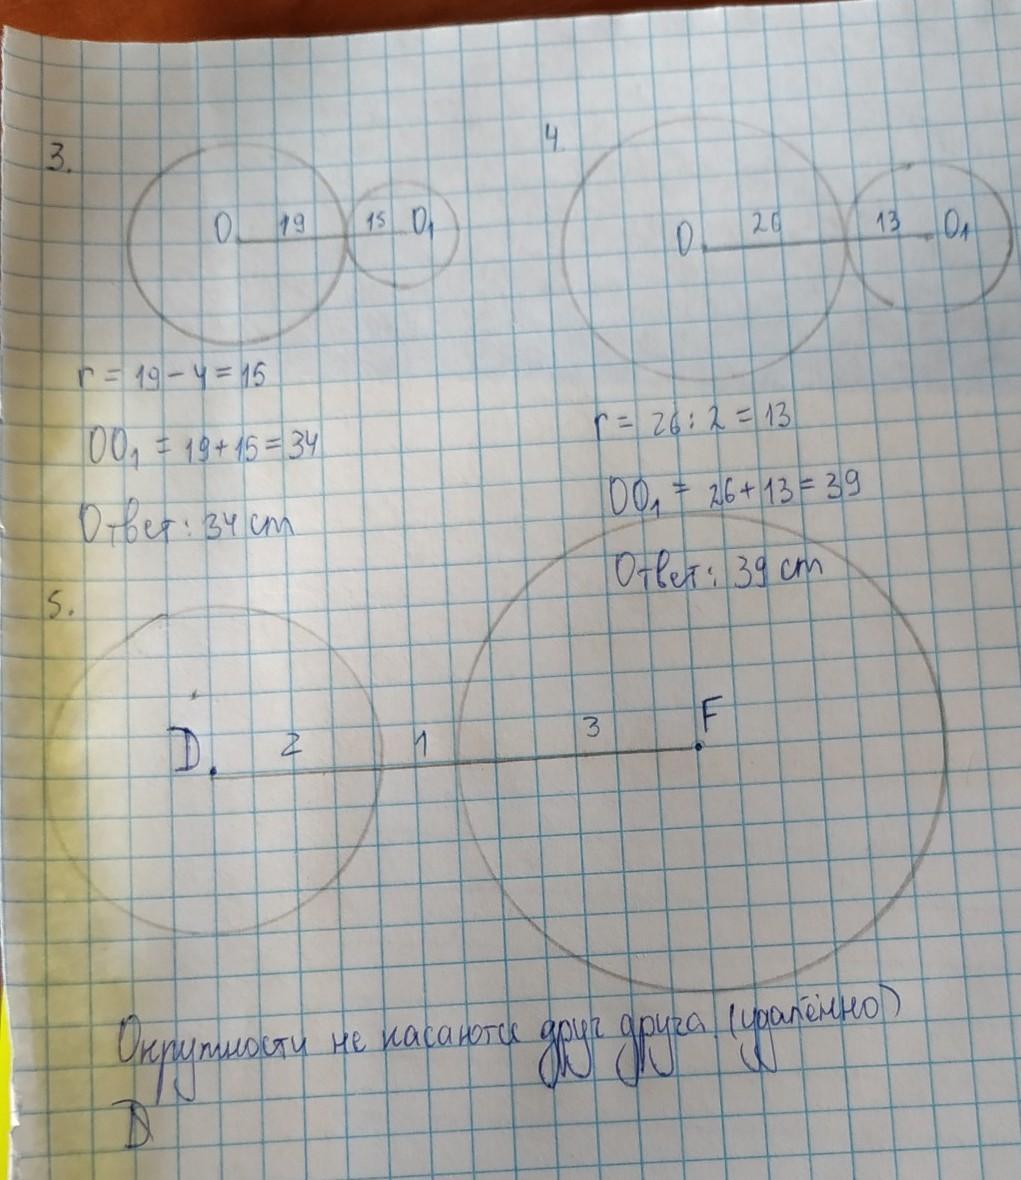 3.
O 19 15 O₁
r = 19 - 4 = 15
OO₁ = 19 + 15 = 34
Ответ: 34 cm
4
O 26 13 O₁
r = 26 : 2 = 13
OO₁ = 26 + 13 = 39
Ответ: 39 cm
5.
D 2 1 3 F
Окружности не касаются друг друга (удалённо)
D